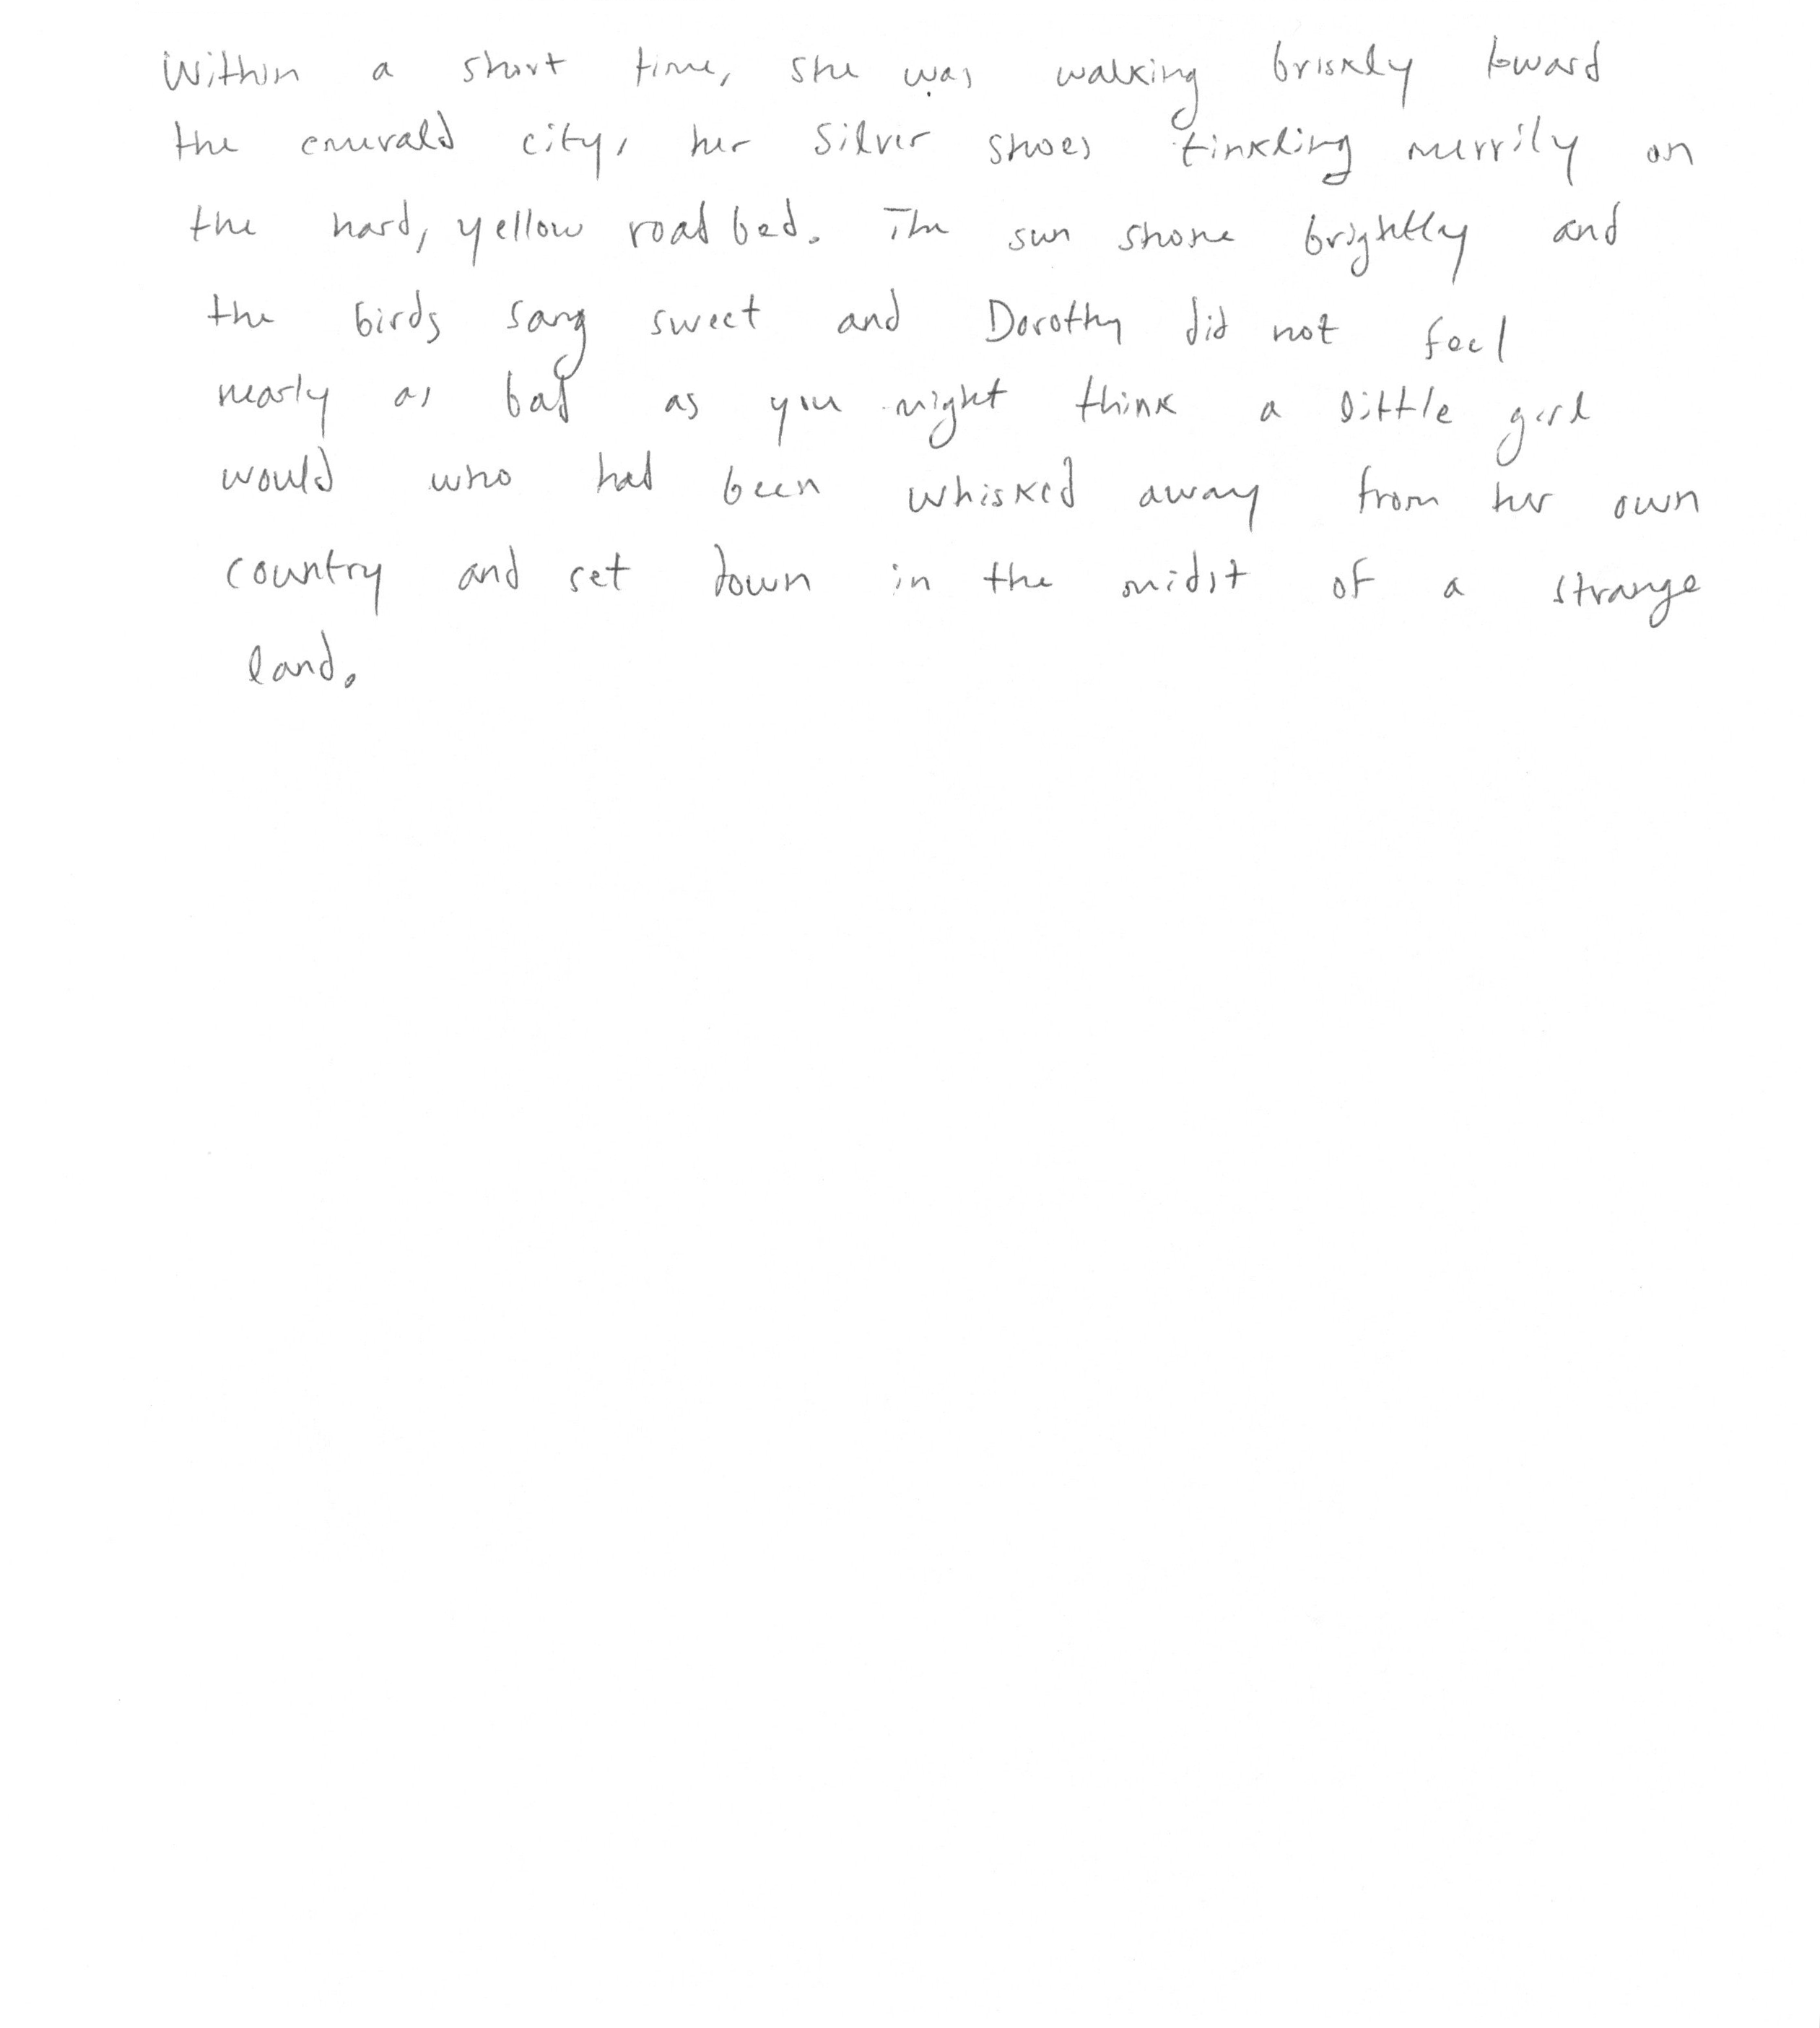 Within a short time, she was walking briskly toward
the emerald city, her silver shoes tinkling merrily on
the hard, yellow road bed. The sun shone brightly and
the birds sang sweet and Dorothy did not feel
nearly as bad as you might think a little girl
would who had been whisked away from her own
country and set down in the midst of a strange
land.